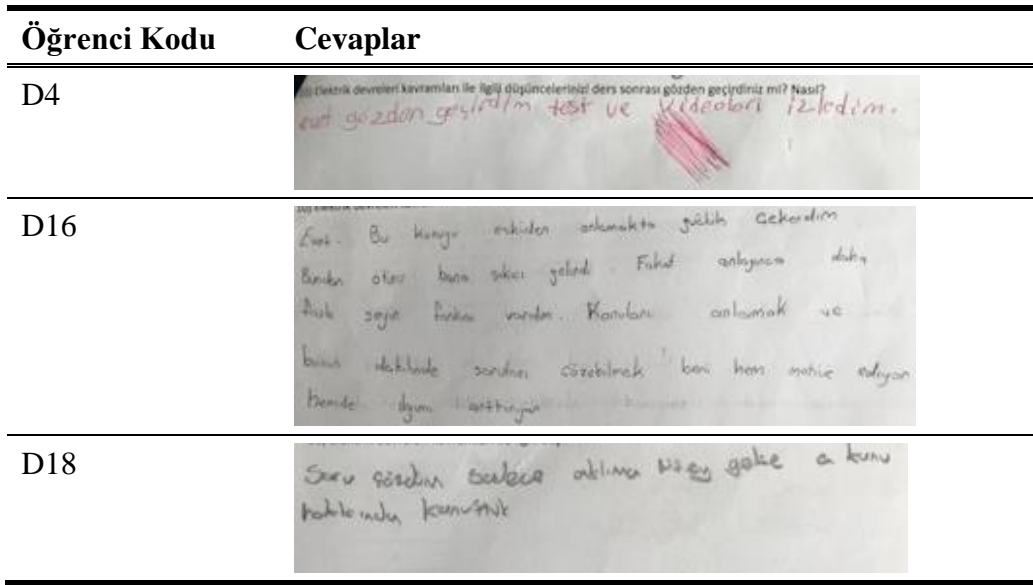 Öğrenci Kodu Cevaplar
D4
Elektrik devreleri kavramları ile ilgili düşüncelerinizi ders sonrası gözden geçirdiniz mi? Nasıl?
evet gözden geçirdim test ve videoları izledim.
D16
Evet. Bu konuyu eskiden anlamakta güçlük çekerdim
Bundan ötürü bana sıkıcı gelirdi. Fakat anlayınca daha
fazla şeyin farkına vardım. Konuları anlamak ve
bunun soruları çözebilmek beni hem motive ediyor
hemde ilgimi arttırıyor
D18
Soru çözdüm sadece aklıma bişey gelse o konu
hakkında konuştuk